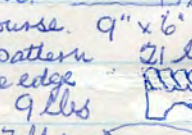 ourse. 9" x 6"
pattern 21 l
e edge
9 lbs